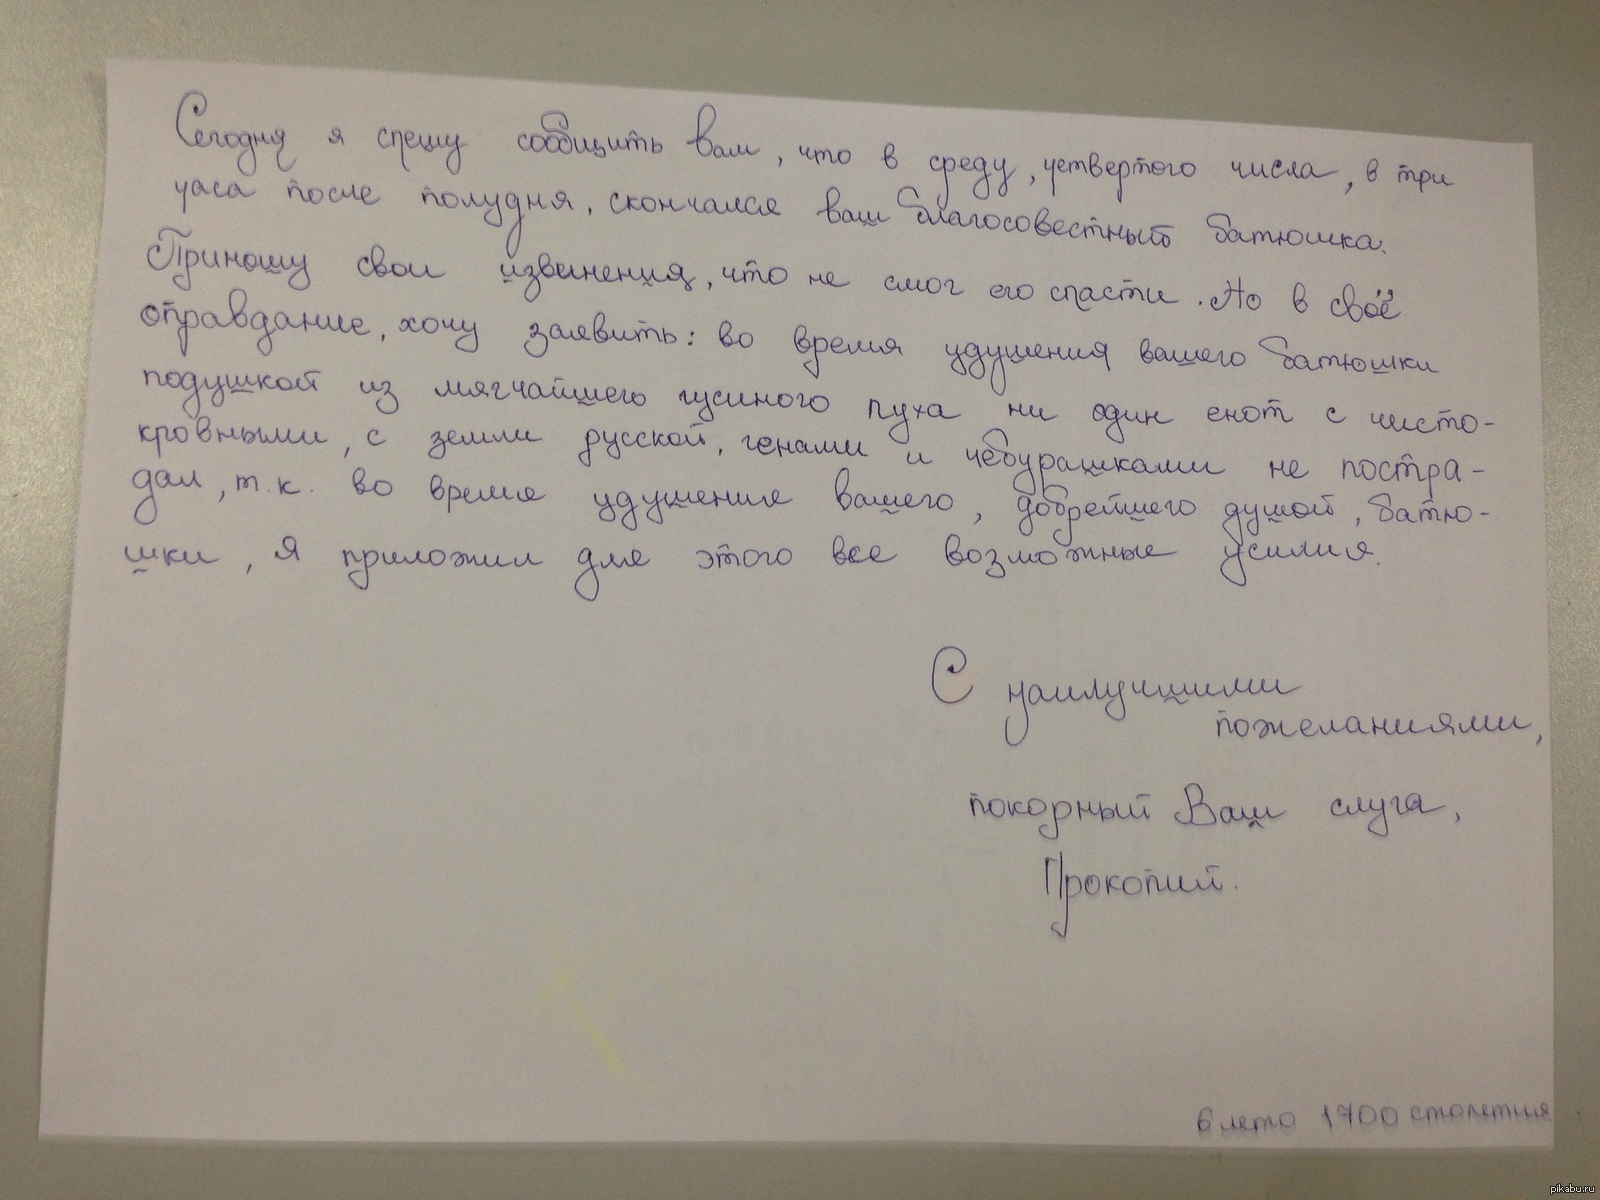 Сегодня я спешу сообщить Вам, что в среду, четвертого числа, в три
часа после полудня, скончался ваш благосовестный батюшка.
Приношу свои извенения, что не смог его спасти. Но в своё
оправдание, хочу заявить: во время удушения вашего батюшки
подушкой из мягчайшего гусиного пуха ни один енот с чисто-
кровными, с земли русской, генами и чебурашками не постра-
дал, т.к. во время удушение вашего, добрейшего душой, батю-
шки, я приложил для этого все возможные усилия.
С наилучшими
пожеланиями,
покорный Ваш слуга,
Прокопий.
6 лето 1700 столетия
pikabu.ru